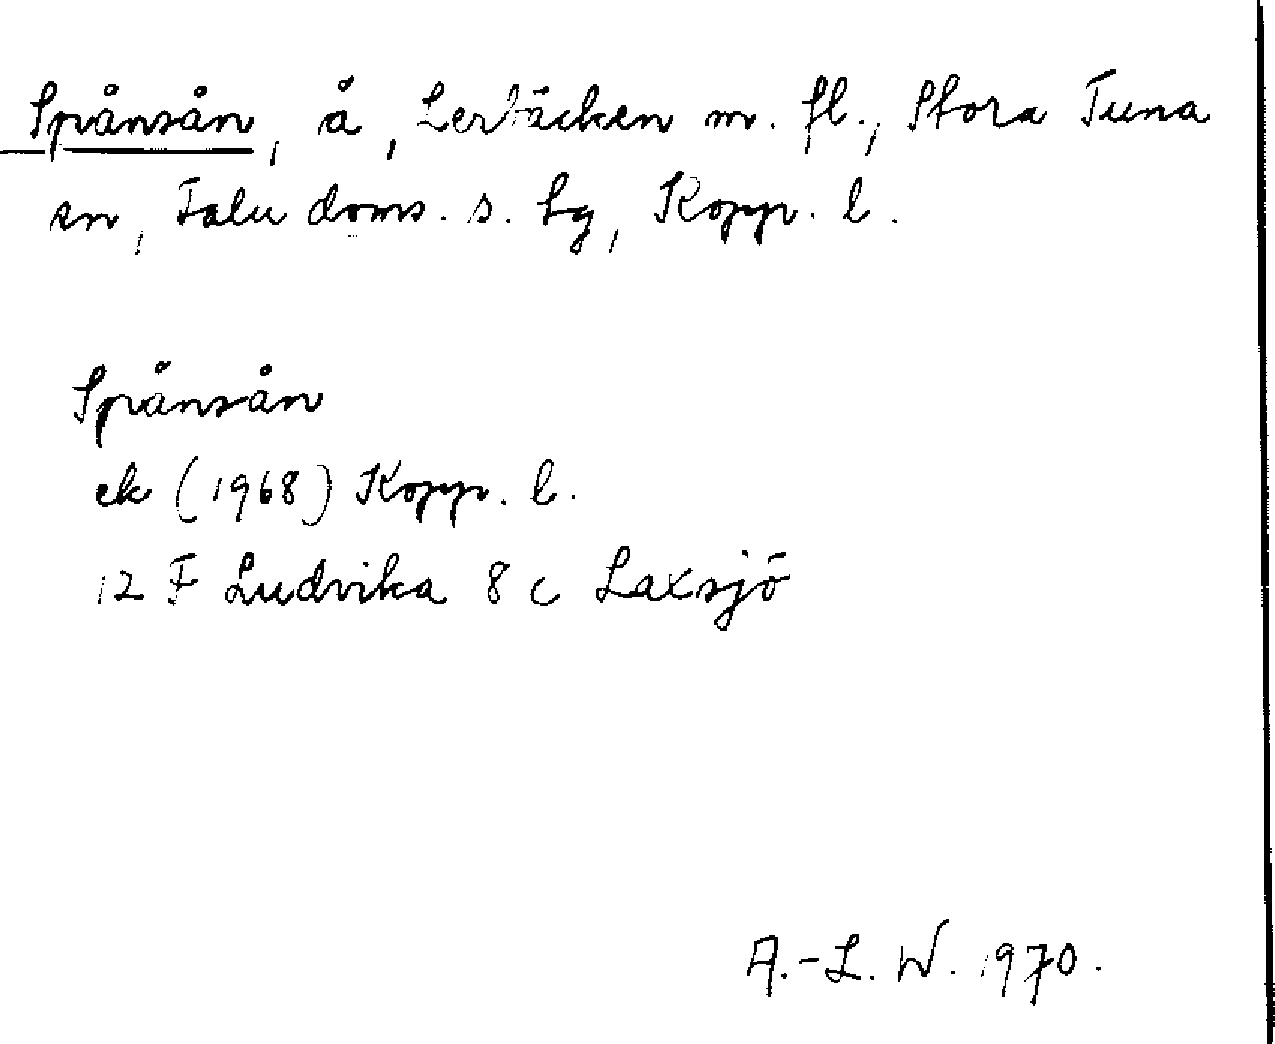 Spånsån, å, Lerbäcken m. fl., Stora Tuna
sn, Falu doms. s. hg, Kopp. l.
Spånsån
ek (1968) Kopp. l.
12 F Ludvika 8 c Laxsjö
A.-L. W. 1970.